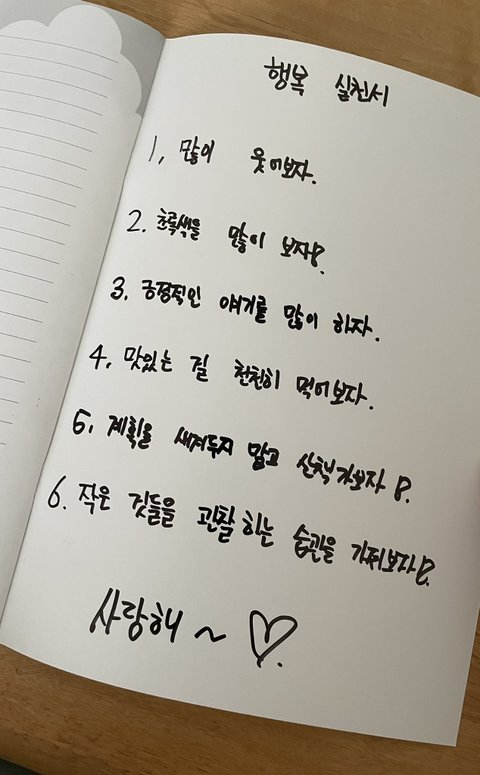 행복 실천서
1, 많이 웃어보자.
2. 초록색을 많이 보자!.
3. 긍정적인 얘기를 많이 하자.
4. 맛있는 걸 천천히 먹어보자.
5. 계획을 세겨두지 말고 산책 가보자!.
6. 작은 것들을 관찰하는 습관을 가져보자!.
사랑해~ ♡.